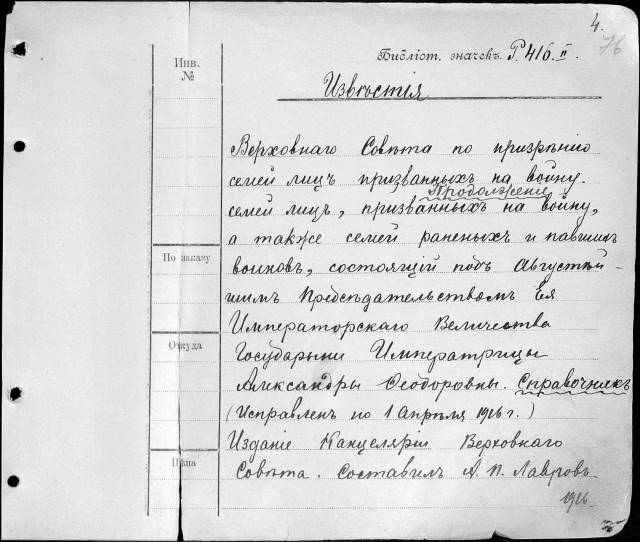 4.
76
Библіот. значекъ. Р. 416. II.
Инв.
№
Извѣстія
Верховнаго Совѣта по призрѣнію
семей лицъ призванныхъ на войну.
Продолженіе
семей лицъ, призванныхъ на войну,
а также семей раненыхъ и павшихъ
По заказу
воиновъ, состоящій подъ Августѣй-
шимъ Предсѣдательствомъ Ея
Императорскаго Величества
Откуда
Государыни Императрицы
Александры Ѳеодоровны. Справочникъ
(Исправленъ по 1 Апрѣля 1916 г.)
Изданіе Канцеляріи Верховнаго
Цѣна
Совѣта. Составилъ А. П. Лавровъ.
1916.